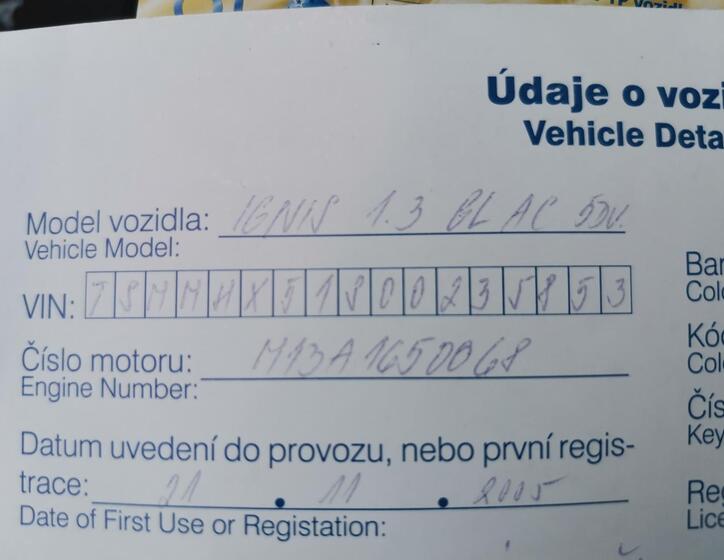 TP vozidl
Údaje o vozi
Vehicle Deta
Model vozidla: IGNIS 1.3 GL AC 5DV.
Vehicle Model:
VIN: TSMMHX51S00235853
Číslo motoru: M13A1650068
Engine Number:
Datum uvedení do provozu, nebo první regis-
trace: 21 . 11 . 2005
Date of First Use or Registation:
Bar
Colo
Kó
Colo
Čís
Key
Reg
Lice